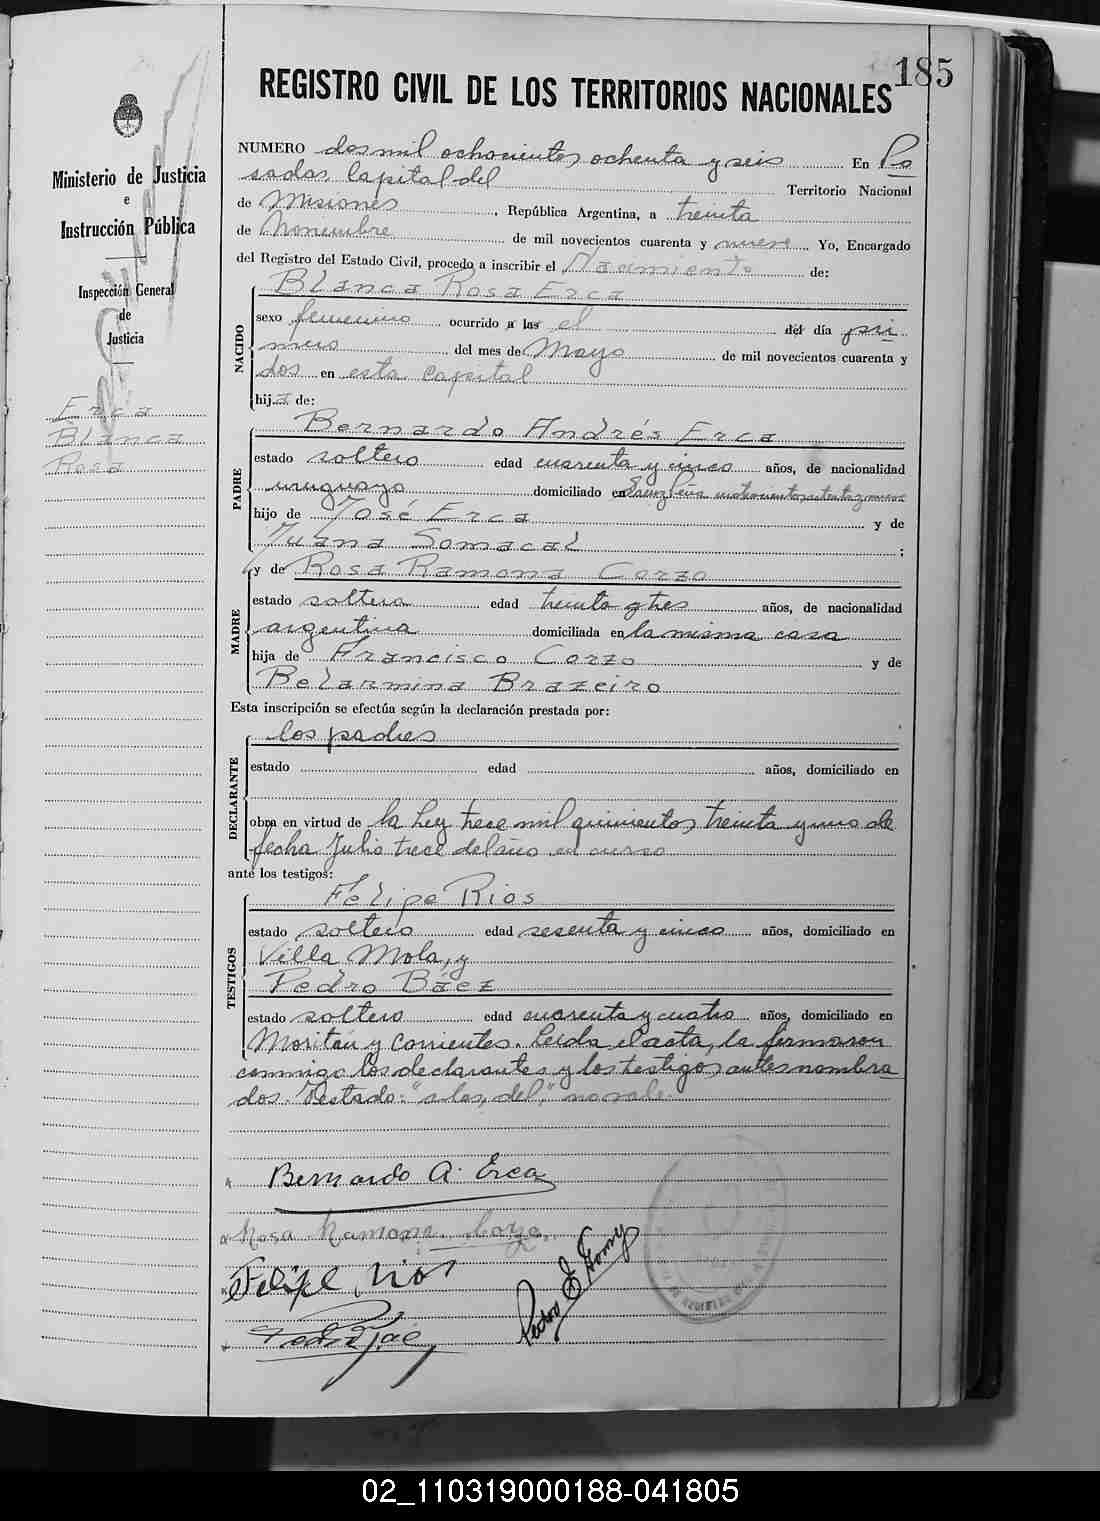 185
REGISTRO CIVIL DE LOS TERRITORIOS NACIONALES
Ministerio de Justicia
e
Instrucción Pública
Inspección General
de
Justicia
Erca
Blanca
Rosa
NUMERO dos mil ochocientos ochenta y seis En Po
sadas, Capital del Territorio Nacional
de Misiones, República Argentina, a treinta
de Noviembre de mil novecientos cuarenta y nueve Yo, Encargado
del Registro del Estado Civil, procedo a inscribir el Nacimiento de:
NACIDO
Blanca Rosa Erca
sexo femenino ocurrido a las el del día pri
mero del mes de Mayo de mil novecientos cuarenta y
dos en esta capital
hija de:
PADRE
Bernardo Andrés Erca
estado soltero edad cuarenta y cinco años, de nacionalidad
uruguaya domiciliado en
hijo de José Erca y de
Juana Somacal ;
y de Rosa Ramona Corzo
MADRE
estado soltera edad treinta y tres años, de nacionalidad
argentina domiciliada en la misma casa
hija de Francisco Corzo y de
Belarmina Brazeiro
Esta inscripción se efectúa según la declaración prestada por:
DECLARANTE
los padres
estado edad años, domiciliado en
obra en virtud de la Ley trece mil quinientos treinta y uno de
fecha Julio trece del año en curso
ante los testigos:
TESTIGOS
Felipe Rios
estado soltero edad sesenta y cinco años, domiciliado en
Villa Mola, y
Pedro Báez
estado soltero edad cuarenta y cuatro años, domiciliado en
Moritán y Corrientes. Leída el acta, la firmaron
conmigo los declarantes y los testigos antes nombra
dos. Testado: "a las, del," no vale.
Bernardo A. Erca
Rosa Ramona Corzo
Felipe Rios
02_110319000188-041805